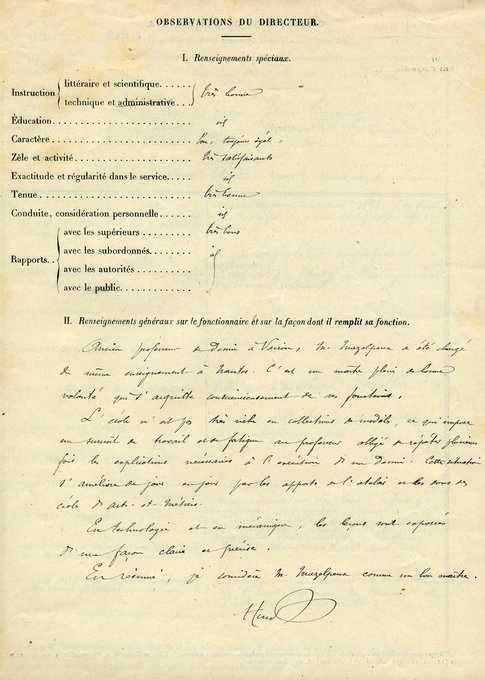 OBSERVATIONS DU DIRECTEUR.
I. Renseignements spéciaux.
Instruction { littéraire et scientifique. } très bonne
technique et administrative..
Éducation id
Caractère bon, toujours égal.
Zèle et activité très satisfaisants
Exactitude et régularité dans le service id
Tenue très bonne
Conduite, considération personnelle id
Rapports { avec les supérieurs très bons
avec les subordonnés id
avec les autorités
avec le public
II. Renseignements généraux sur le fonctionnaire et sur la façon dont il remplit sa fonction.
Ancien professeur de Dessin à M. Mazelpeux a été chargé
du même enseignement à Nantes. C'est un maître plein de bonne
volonté qui s'acquitte consciencieusement de ses fonctions.
L'école n'est pas très riche en collections de modèle, ce qui impose
un surcroît de travail et de fatigue au professeur obligé de répéter plusieurs
fois les explications nécessaires à l'exécution d'un Dessin. Cette situation
s'améliore de jour en jour par les apports de l'atelier et les dons des
écoles d'arts et métiers.
En technologie et en mécanique, les leçons sont exposées
d'une façon claire et précise.
En résumé, je considère M. Mazelpeux comme un bon maître.